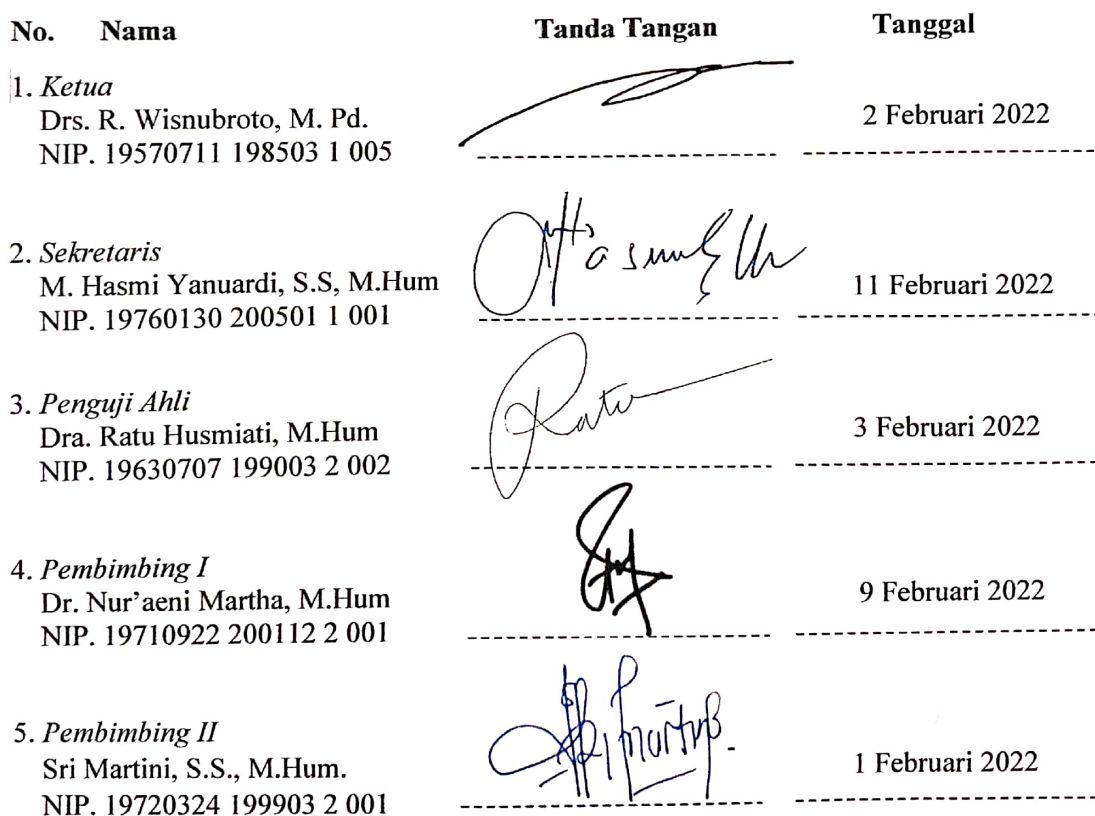 No. Nama Tanda Tangan Tanggal
1. Ketua
Drs. R. Wisnubroto, M. Pd.
NIP. 19570711 198503 1 005
2 Februari 2022
2. Sekretaris
M. Hasmi Yanuardi, S.S, M.Hum
NIP. 19760130 200501 1 001
11 Februari 2022
3. Penguji Ahli
Dra. Ratu Husmiati, M.Hum
NIP. 19630707 199003 2 002
Ratu
3 Februari 2022
4. Pembimbing I
Dr. Nur'aeni Martha, M.Hum
NIP. 19710922 200112 2 001
9 Februari 2022
5. Pembimbing II
Sri Martini, S.S., M.Hum.
NIP. 19720324 199903 2 001
1 Februari 2022